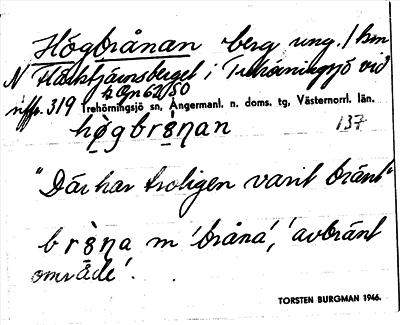 Högbrånan berg ung. 1 km
N Härktjärnsberget i Trehörningsjö vid
siffr. 319 k Ögn 62/50
Trehörningsjö sn, Ångermanl. n. doms. tg, Västernorrl. län.
högbrånan 137
"Där har troligen varit bränt"
bråna m 'bråna', 'avbränt
område'.
TORSTEN BURGMAN 1946.